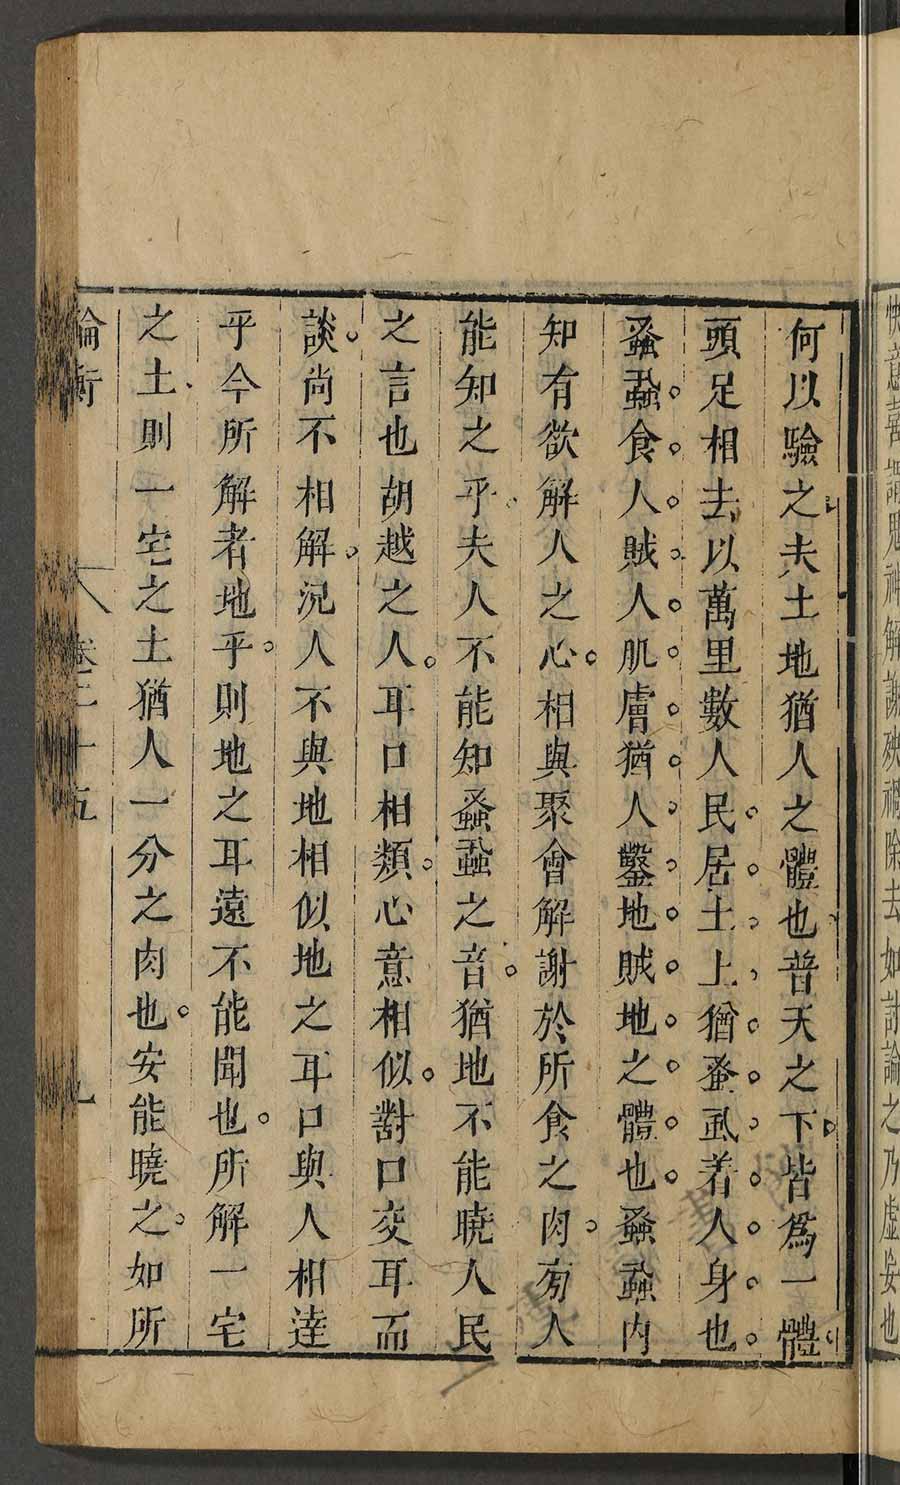 快意喜謂鬼神解謝殃禍除去如討論之乃虛妄也
何以驗之夫土地猶人之體也普天之下皆爲一體
頭足相去以萬里數人民居土上猶蚤虱着人身也
蚤蝨食人賊人肌膚猶人鑿地賊地之體也蚤蝨內
知有欲解人之心相與聚會解謝於所食之肉旁人
能知之乎夫人不能知蚤蝨之音猶地不能曉人民
之言也胡越之人耳口相類心意相似對口交耳而
談尚不相解況人不與地相似地之耳口與人相達
乎今所解者地乎則地之耳遠不能聞也所解一宅
之土則一宅之土猶人一分之肉也安能曉之如所
論衡 卷二十五 九